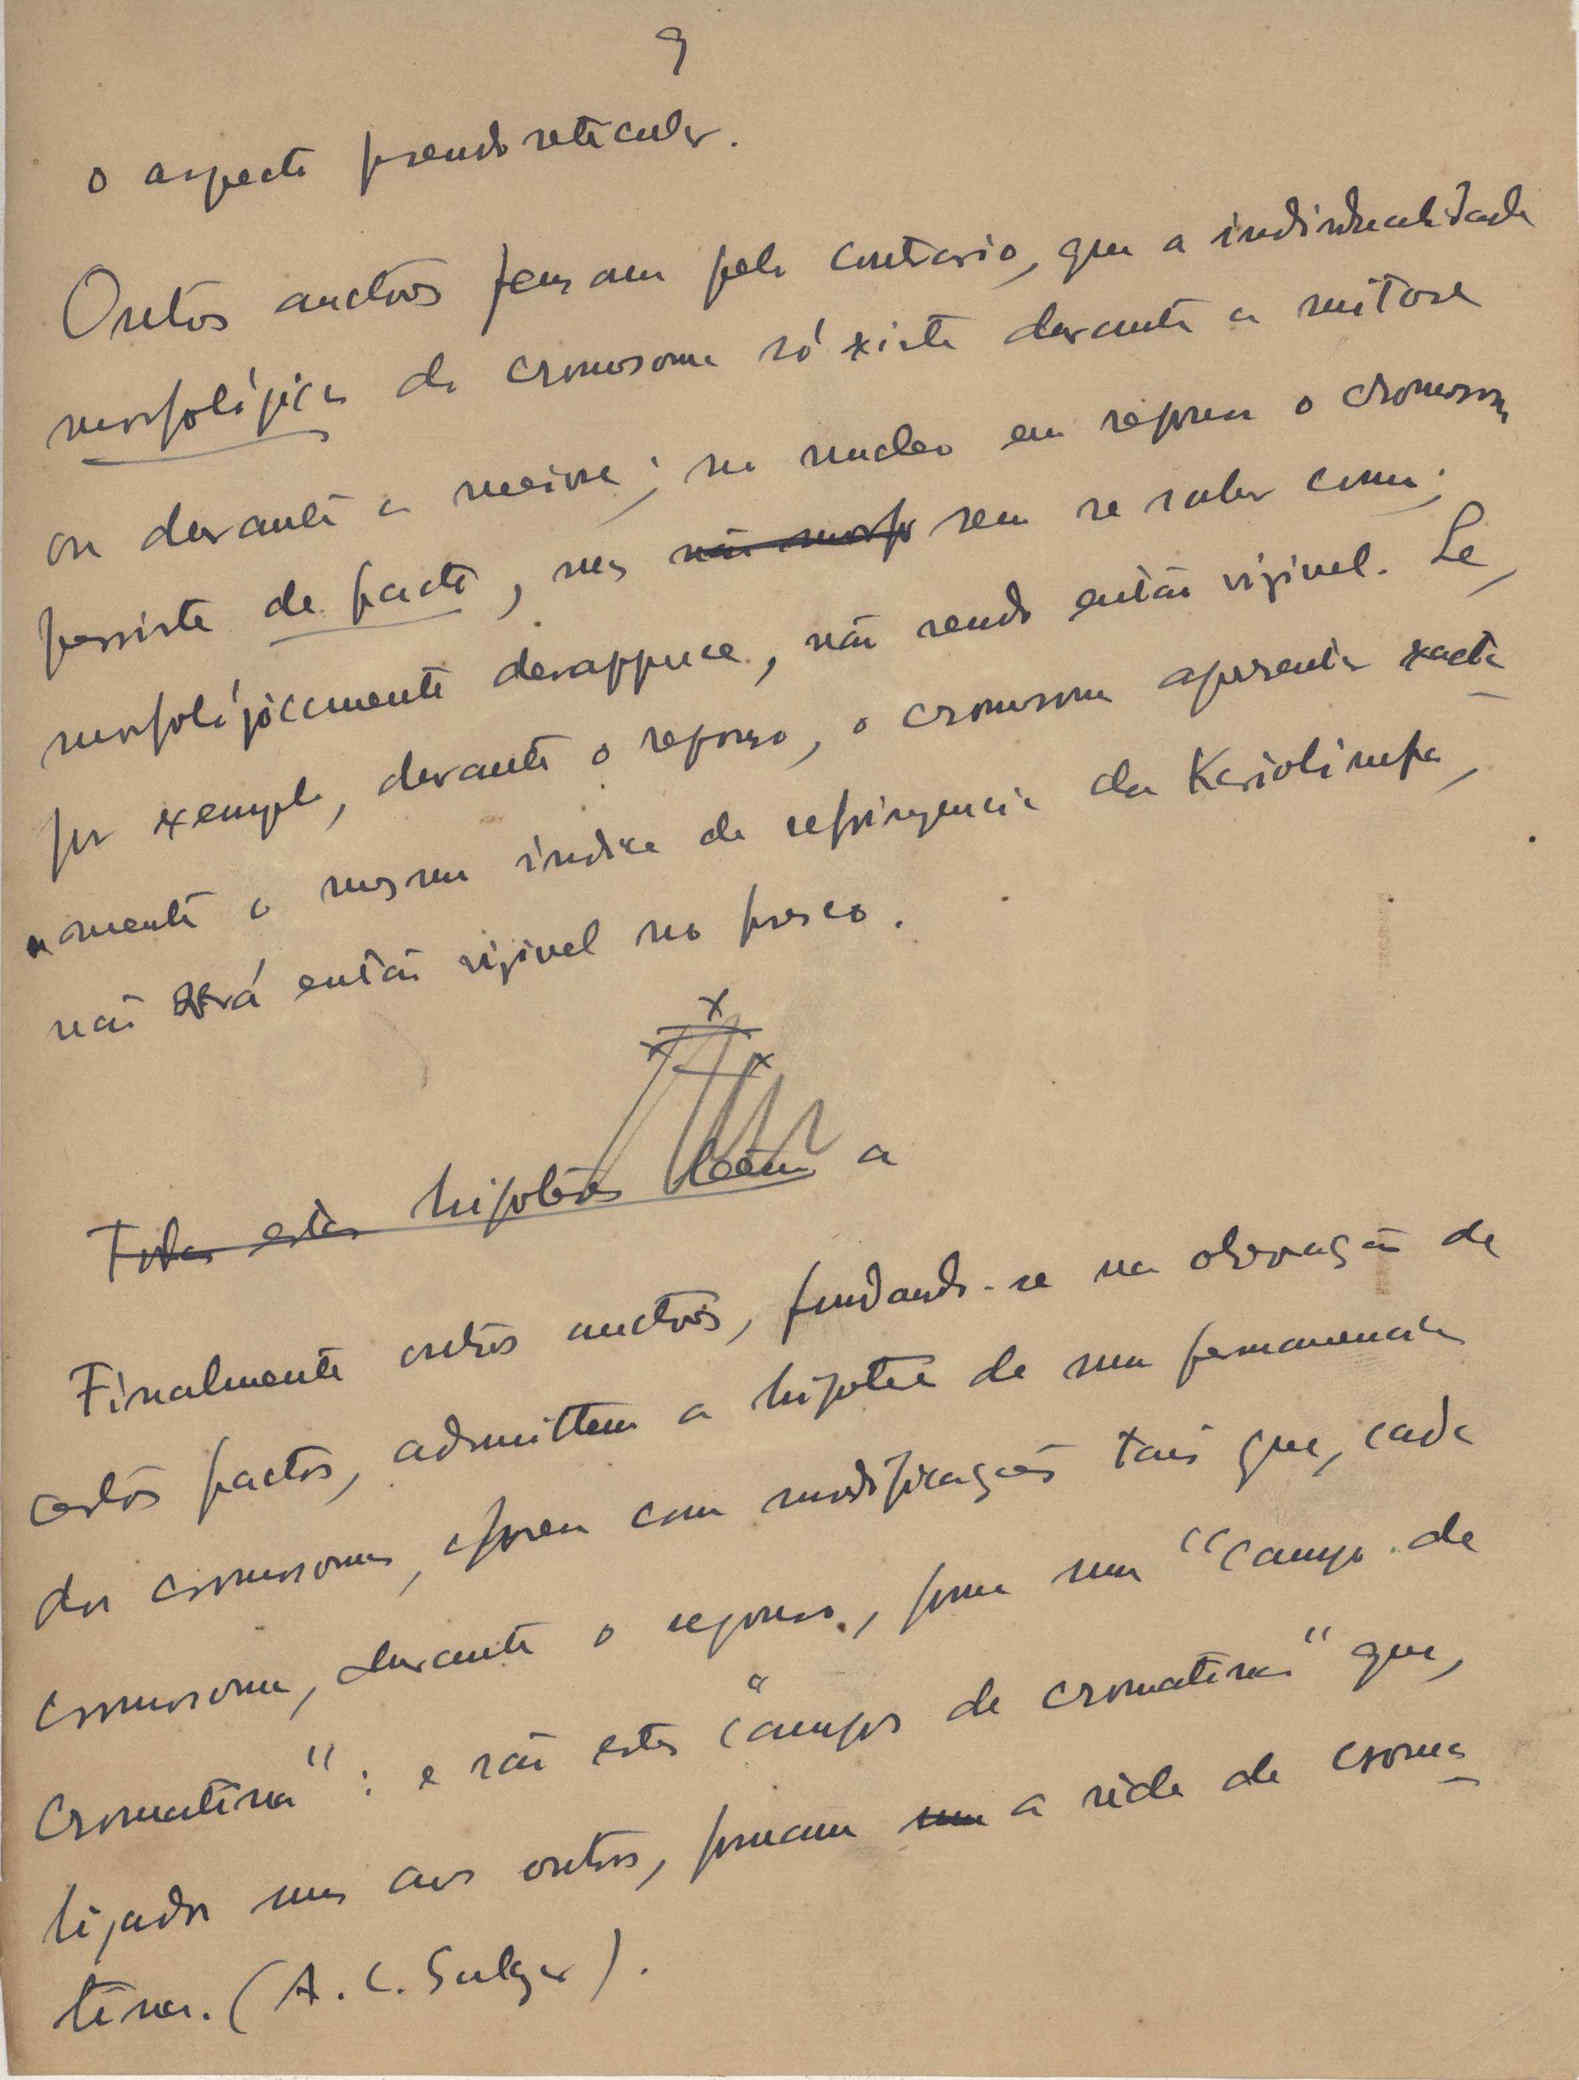 9
o aspecto pseudo reticular.
Outros auctores pensam pelo contrario, que a individualidade
morfolójica do cromosoma só xiste durante a mitose
ou durante a meiose; no nucleo em repouso o cromosoma
persiste de facto, mas não morfo sem se saber como;
morfolójicamente desapparece, não sendo então vizivel. Se,
por xemplo, durante o repouso, o cromosoma apresenta xacta
mente o mesmo indice de refrinjencia da Kariolinfa,
não será então vizivel no fresco.
x
x x
Todas estas hipoteses leem a
Finalmente outros auctores, fundando-se na observação de
certos factos, admittem a hipotese de uma permanencia
dos cromosomas, porem com modificações tais que, cada
cromosoma, durante o repouso, forma um "campo de
cromatina": e são estes "campos de cromatina" que,
lijados uns aos outros, formam uma a rêde de croma
tina. (A. C. Sulger).